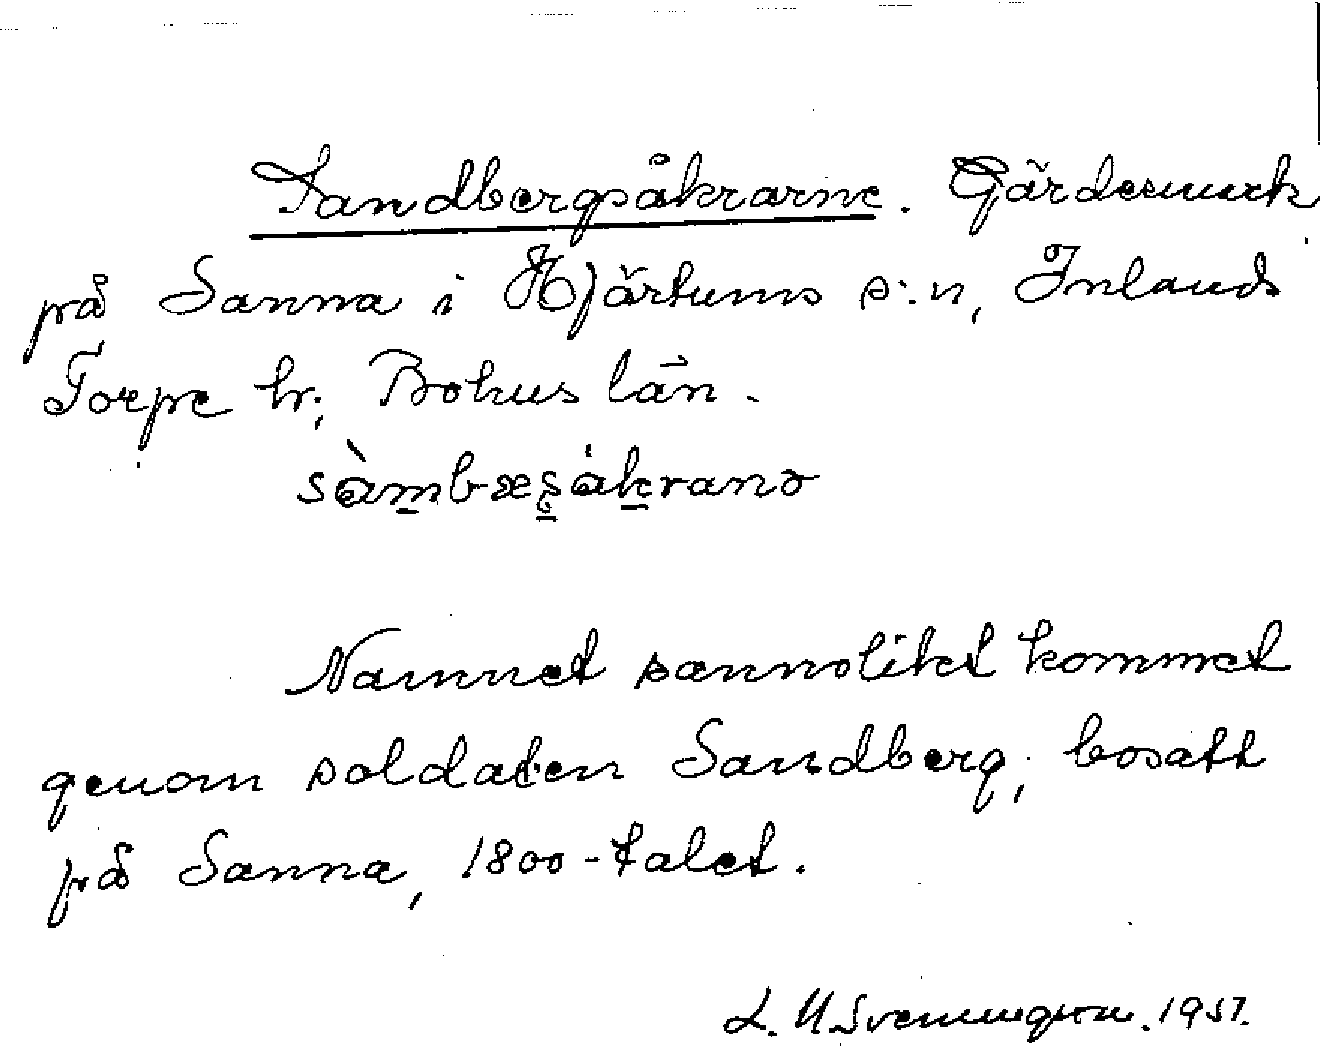 Sandbergsåkrarne. Gärdesmark
på Sanna i Hjärtums s:n, Inlands
Torpe hr, Bohus län.
sàmbæʂåkranə
Namnet sannolikt kommet
genom soldaten Sandberg, bosatt
på Sanna, 1800-talet.
L. M. Svenungsson. 1951.